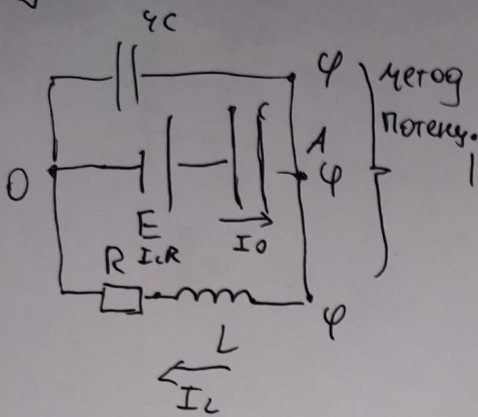 4C
φ
метод
потенц.
A
C
O
φ
E
I₀
R
I_LR
φ
L
I_L